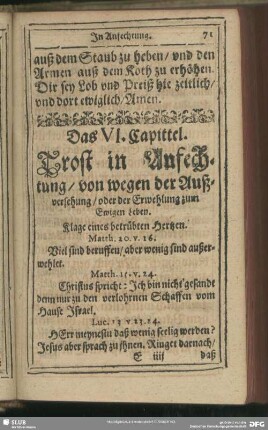 In Anfechtung. 71
auß dem Staub zu heben / vnd den
Armen auß dem Koth zu erhöhen.
Dir sey Lob vnd Preiß hie zeitlich /
vnd dort ewiglich / Amen.
Das VI. Capittel.
Trost in Anfech-
tung / von wegen der Auß-
versehung / oder der Erwehlung zum
Ewigen Leben.
Klage eines betrübten Hertzen.
Matth. 20. v. 16.
Viel sind beruffen / aber wenig sind außer-
wehlet.
Matth. 15. v. 24.
Christus spricht: Ich bin nicht gesandt
denn nur zu den verlohrnen Schaffen vom
Hause Israel.
Luc. 13 v 23.24.
HErr meynestu daß wenig seelig werden?
Jesus aber sprach zu ihnen. Ringet darnach /
E iiij daß
SLUB
DFG